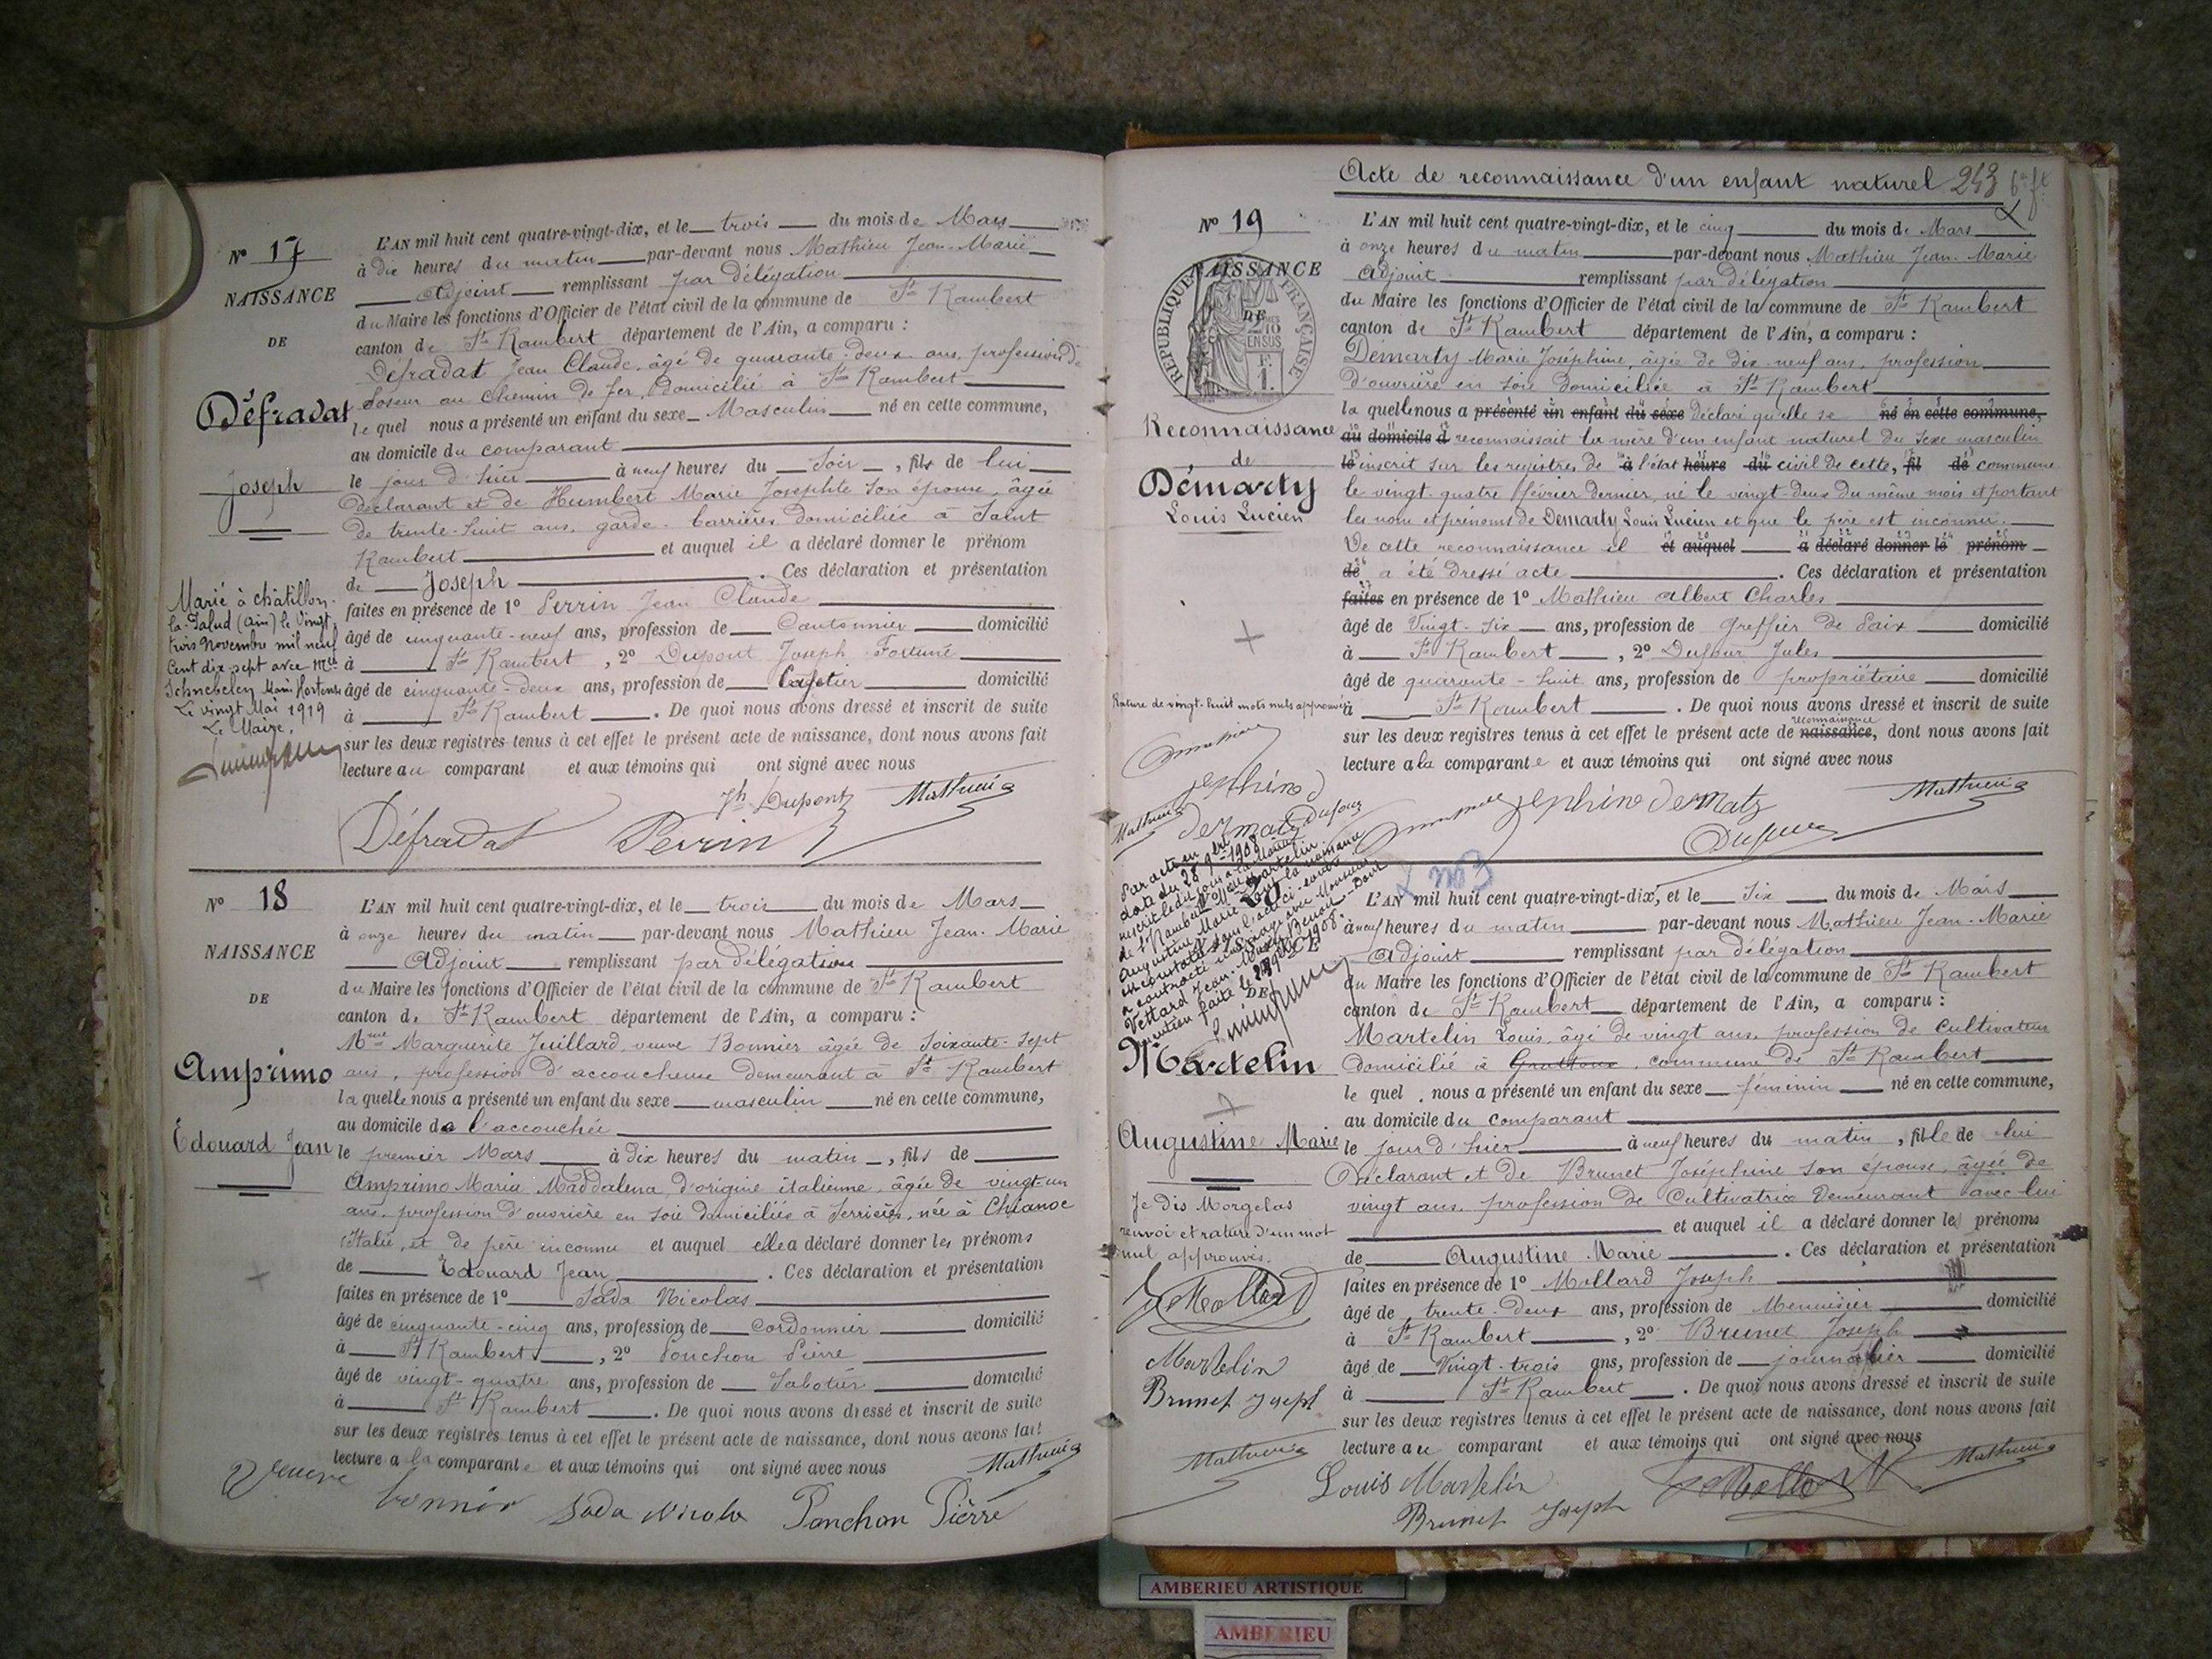 N° 17
NAISSANCE
DE
Défradat
Joseph
L'AN mil huit cent quatre-vingt-dix, et le trois du mois de Mars
à dix heures du matin par-devant nous Mathieu Jean-Marie
Adjoint remplissant par délégation
du Maire les fonctions d'Officier de l'état civil de la commune de St Rambert
canton de St Rambert département de l'Ain, a comparu :
Défradat Jean Claude, âgé de quarante-deux ans, profession de
Poseur au Chemin de Fer, domicilié à St Rambert
le quel nous a présenté un enfant du sexe Masculin né en cette commune,
au domicile du comparant
le jour d'hier à neuf heures du Soir, fils de lui
déclarant et de Humbert Marie Josephte son épouse, âgée
de trente-huit ans, garde-barrières domiciliée à Saint
Rambert et auquel il a déclaré donner le prénom
de Joseph. Ces déclaration et présentation
faites en présence de 1° Perrin Jean Claude
âgé de cinquante-neuf ans, profession de Cantonnier domicilié
à St Rambert, 2° Dupont Joseph Fortuné
âgé de cinquante-deux ans, profession de Cafetier domicilié
à St Rambert. De quoi nous avons dressé et inscrit de suite
sur les deux registres tenus à cet effet le présent acte de naissance, dont nous avons fait
lecture au comparant et aux témoins qui ont signé avec nous
Marié à châtillon-
la-Palud (Ain) le vingt
trois novembre mil neuf
Cent dix-sept avec Mlle
Schnebelen Marie Hortense
Le vingt Mai 1919
Le Maire,
Jh Dupont Mathieu
Défradat Perrin
N° 18
NAISSANCE
DE
Amprimo
Edouard Jean
L'AN mil huit cent quatre-vingt-dix, et le trois du mois de Mars
à onze heures du matin par-devant nous Mathieu Jean-Marie
Adjoint remplissant par délégation
du Maire les fonctions d'Officier de l'état civil de la commune de St Rambert
canton de St Rambert département de l'Ain, a comparu :
Mme Marguerite Juillard, veuve Bonnier âgée de soixante-sept
ans, profession d'accoucheuse demeurant à St Rambert
la quelle nous a présenté un enfant du sexe masculin né en cette commune,
au domicile de l'accouchée
le premier Mars à dix heures du matin, fils de
Amprimo Maria Maddalena, d'origine italienne, âgée de vingt-un
ans, profession d'ouvrière en soie domiciliée à Serrières, née à Chianoc
Italie, et de père inconnu et auquel elle a déclaré donner les prénoms
de Edouard Jean. Ces déclaration et présentation
faites en présence de 1° Sada Nicolas
âgé de cinquante-cinq ans, profession de Cordonnier domicilié
à St Rambert, 2° Ponchon Pierre
âgé de vingt-quatre ans, profession de Sabotier domicilié
à St Rambert. De quoi nous avons dressé et inscrit de suite
sur les deux registres tenus à cet effet le présent acte de naissance, dont nous avons fait
lecture a la comparante et aux témoins qui ont signé avec nous
Mathieu
Veuve Bonnier Sada Nicola Ponchon Pierre
Acte de reconnaissance d'un enfant naturel 243
N° 19
NAISSANCE
DE
RÉPUBLIQUE FRANÇAISE
Reconnaissance
de
Démarty
Louis Lucien
L'AN mil huit cent quatre-vingt-dix, et le cinq du mois de Mars
à onze heures du matin par-devant nous Mathieu Jean-Marie
Adjoint remplissant par délégation
du Maire les fonctions d'Officier de l'état civil de la commune de St Rambert
canton de St Rambert département de l'Ain, a comparu :
Démarty Marie Joséphine, âgée de dix-neuf ans, profession
d'ouvrière en soie domiciliée à St Rambert
la quelle nous a présenté un enfant du sexe déclaré qu'elle se né en cette commune,
au domicile d reconnaissait la mère d'un enfant naturel du sexe masculin
le inscrit sur les registres de à l'état heure du civil de cette, fil de commune
le vingt-quatre février dernier, né le vingt-deux du même mois et portant
les nom et prénoms de Demarty Louis Lucien et que le père est inconnu.
De cette reconnaissance il et auquel a déclaré donner le prénom
de a été dressé acte. Ces déclaration et présentation
faites en présence de 1° Mathieu Albert Charles
âgé de Vingt-six ans, profession de Greffier de Paix domicilié
à St Rambert, 2° Dufour Jules
âgé de quarante-huit ans, profession de propriétaire domicilié
à St Rambert. De quoi nous avons dressé et inscrit de suite
sur les deux registres tenus à cet effet le présent acte de naissance reconnaissance, dont nous avons fait
lecture a la comparante et aux témoins qui ont signé avec nous
Rature de vingt-huit mots nuls approuvée
Mathieu Dufour
Mathieu
Dufour
20
NAISSANCE
DE
Martelin
Augustine Marie
n°3
L'AN mil huit cent quatre-vingt-dix, et le six du mois de Mars
à neuf heures du matin par-devant nous Mathieu Jean-Marie
Adjoint remplissant par délégation
du Maire les fonctions d'Officier de l'état civil de la commune de St Rambert
canton de St Rambert département de l'Ain, a comparu :
Martelin Louis, âgé de vingt ans, profession de cultivateur
domicilié à commune de St Rambert
le quel nous a présenté un enfant du sexe féminin né en cette commune,
au domicile du comparant
le jour d'hier à neuf heures du matin, fille de lui
Déclarant et de Brunet Joséphine son épouse, âgée de
vingt ans, profession de Cultivatrice demeurant avec lui
et auquel il a déclaré donner les prénoms
de Augustine Marie. Ces déclaration et présentation
faites en présence de 1° Mollard Joseph
âgé de trente-deux ans, profession de Menuisier domicilié
à St Rambert, 2° Brunet Joseph
âgé de Vingt-trois ans, profession de journalier domicilié
à St Rambert. De quoi nous avons dressé et inscrit de suite
sur les deux registres tenus à cet effet le présent acte de naissance, dont nous avons fait
lecture au comparant et aux témoins qui ont signé avec nous
Je dis Morgelas
renvoi et rature d'un mot
nul approuvés.
J Mollard
Martelin
Brunet Joseph
Mathieu
Louis Martelin Mollard Mathieu
Brunet Joseph
AMBERIEU ARTISTIQUE
AMBERIEU